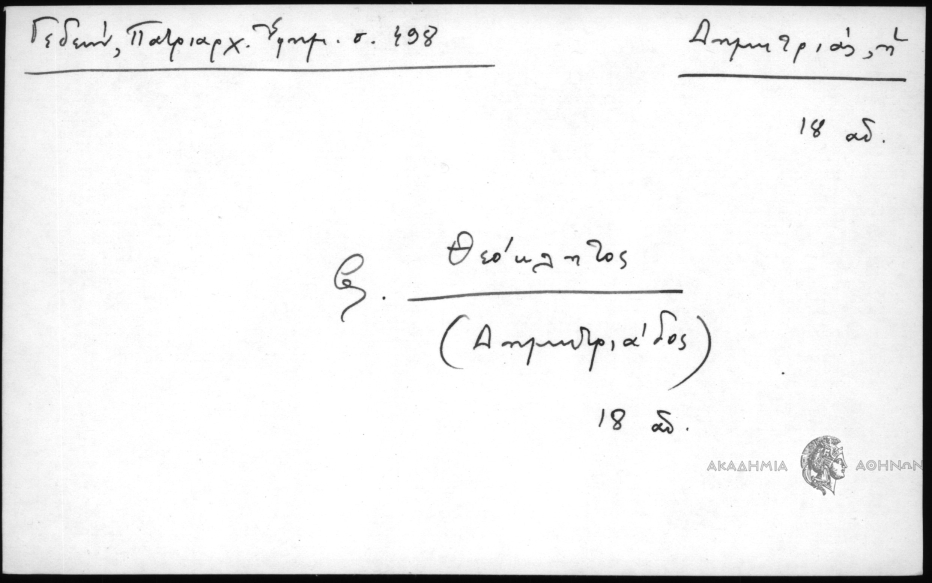 Γεδεών, Πατριαρχ. Ἐφημ. σ. 498
Δημητριάς, ἡ
18 αἰ.
Θεόκλητος
(Δημητριάδος)
18 αἰ.
ΑΚΑΔΗΜΙΑ ΑΘΗΝΩΝ